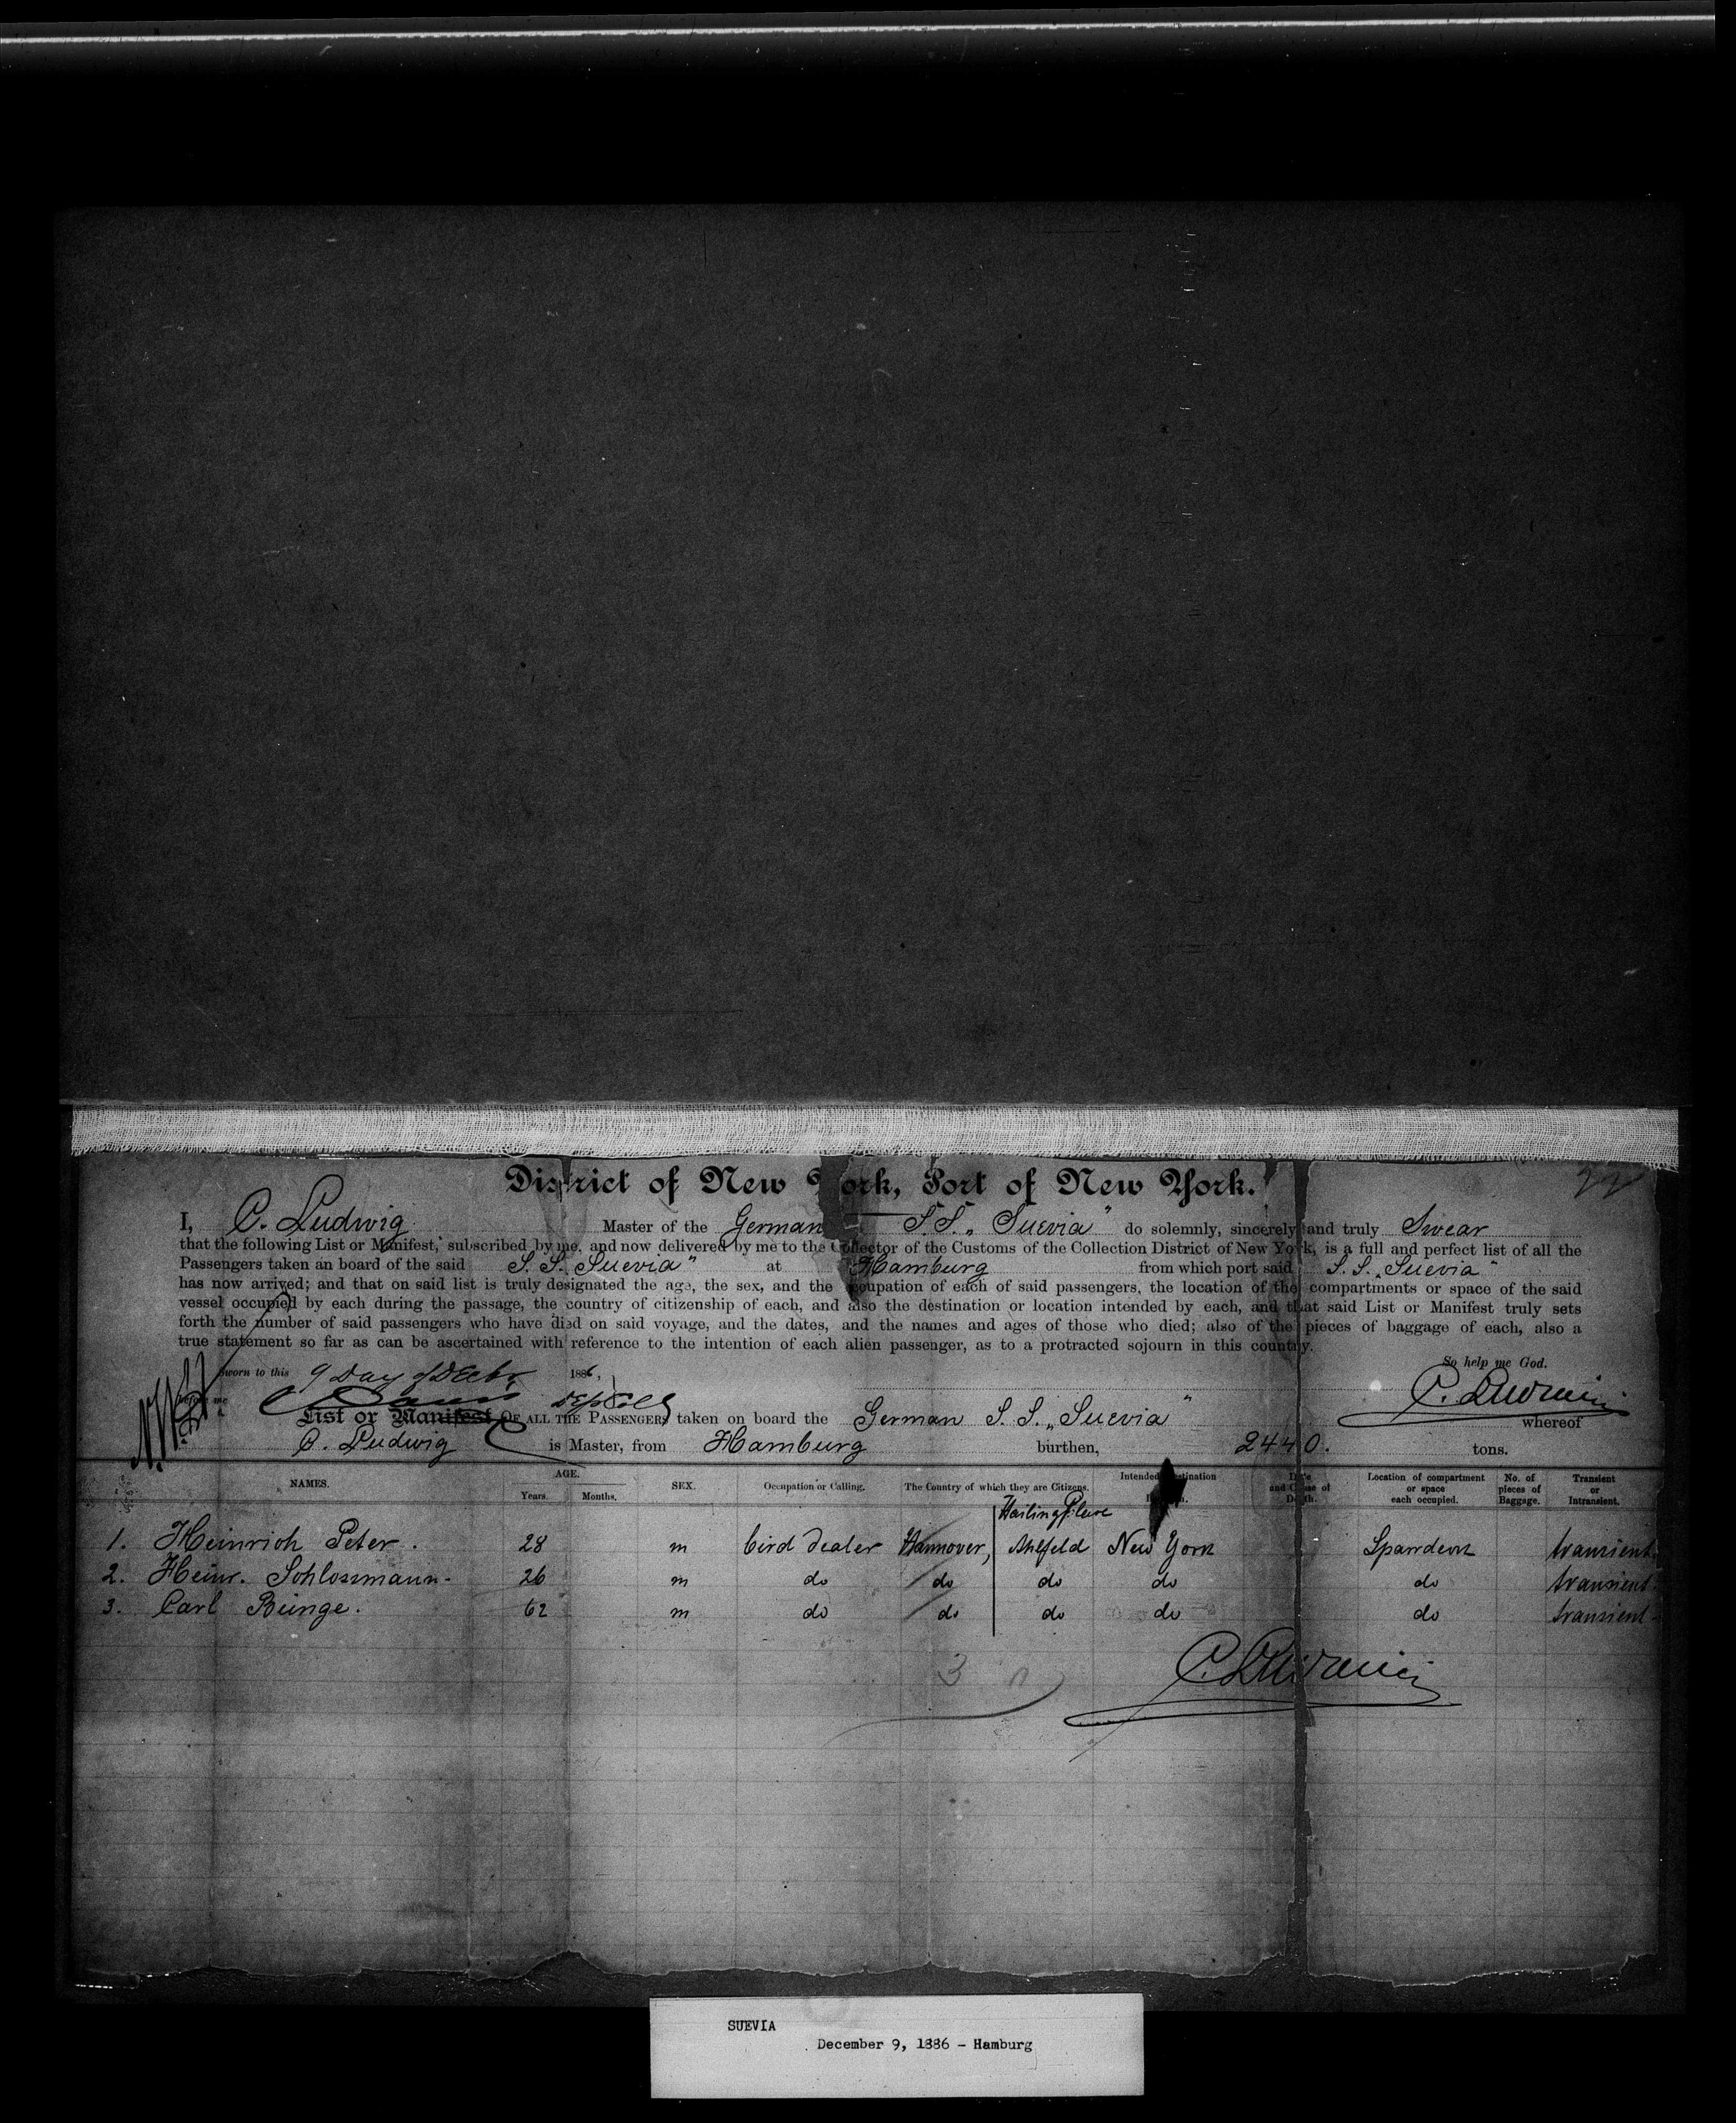 22
District of New York, Port of New York.
I, C. Ludwig Master of the German S.S. „Suevia" do solemnly, sincerely and truly Swear
that the following List or Manifest, subscribed by me, and now delivered by me to the Collector of the Customs of the Collection District of New York, is a full and perfect list of all the
Passengers taken an board of the said S. S. „Suevia" at Hamburg from which port said S. S. „Suevia"
has now arrived; and that on said list is truly designated the age, the sex, and the occupation of each of said passengers, the location of the compartments or space of the said
vessel occupied by each during the passage, the country of citizenship of each, and also the destination or location intended by each, and that said List or Manifest truly sets
forth the number of said passengers who have died on said voyage, and the dates, and the names and ages of those who died; also of the pieces of baggage of each, also a
true statement so far as can be ascertained with reference to the intention of each alien passenger, as to a protracted sojourn in this country.
Sworn to this 9 Day of Decbr 1886, So help me God.
before me C. Ludwig
List or Manifest OF ALL THE PASSENGERS taken on board the German S. S. „Suevia" whereof
C. Ludwig is Master, from Hamburg burthen, 2440. tons.
NAMES. AGE. Years. Months. SEX. Occupation or Calling. The Country of which they are Citizens. Intended Destination Date and Cause of Death. Location of compartment or space each occupied. No. of pieces of Baggage. Transient or Intransient.
Hailing Place
1. Heinrich Peter. 28 m bird dealer Hannover, Ahlfeld New York Spardeck transient.
2. Heinr. Schlossmann. 26 m do do do do do transient.
3. Carl Bünge. 62 m do do do do do transient.
3
C. Ludwig
SUEVIA
December 9, 1886 - Hamburg